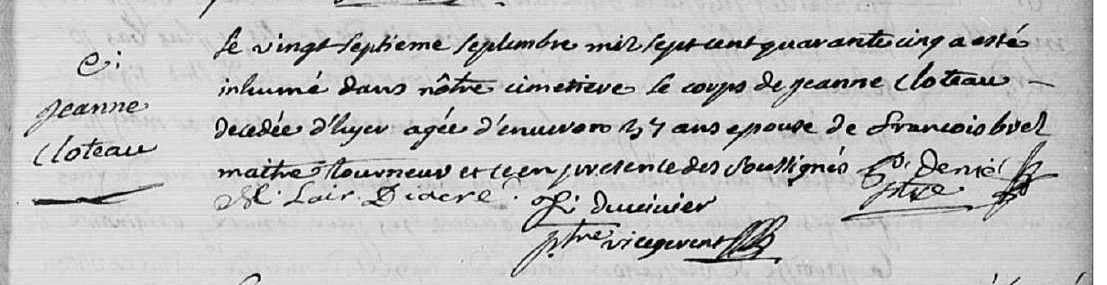 C.
Jeanne
Cloteau
Le vingt septieme septembre mil sept cent quarante cinq a esté
inhumé dans nôtre cimetiere le corps de jeanne Cloteau
decedée d'hyer agée d'environ 37 ans epouse de francois
maitre tourneur et ce en presence des soussignés
ptre
M. Lair Dideré
duvivier
ptre vicegerent